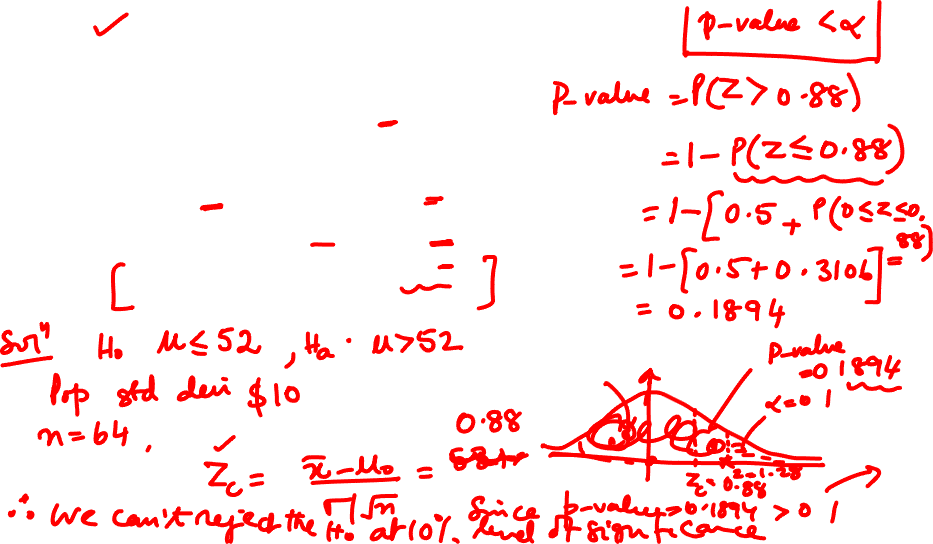 p-value < α
P-value = P(Z > 0.88)
= 1 - P(Z ≤ 0.88)
= 1 - [0.5 + P(0 ≤ Z ≤ 0.88)
= 1 - [0.5 + 0.3106] =
= 0.1894
Solⁿ H₀ μ ≤ 52, Hₐ. μ > 52
Pop std devi $10
n = 64,
Z_c = x̄ - μ₀ / σ/√n = 0.88
P-value
= 0.1894
α = 0.1
Z = 1.28
Z_c = 0.88
∴ we can't reject the H₀ at 10% level of significance
Since p-value = 0.1894 > 0.1